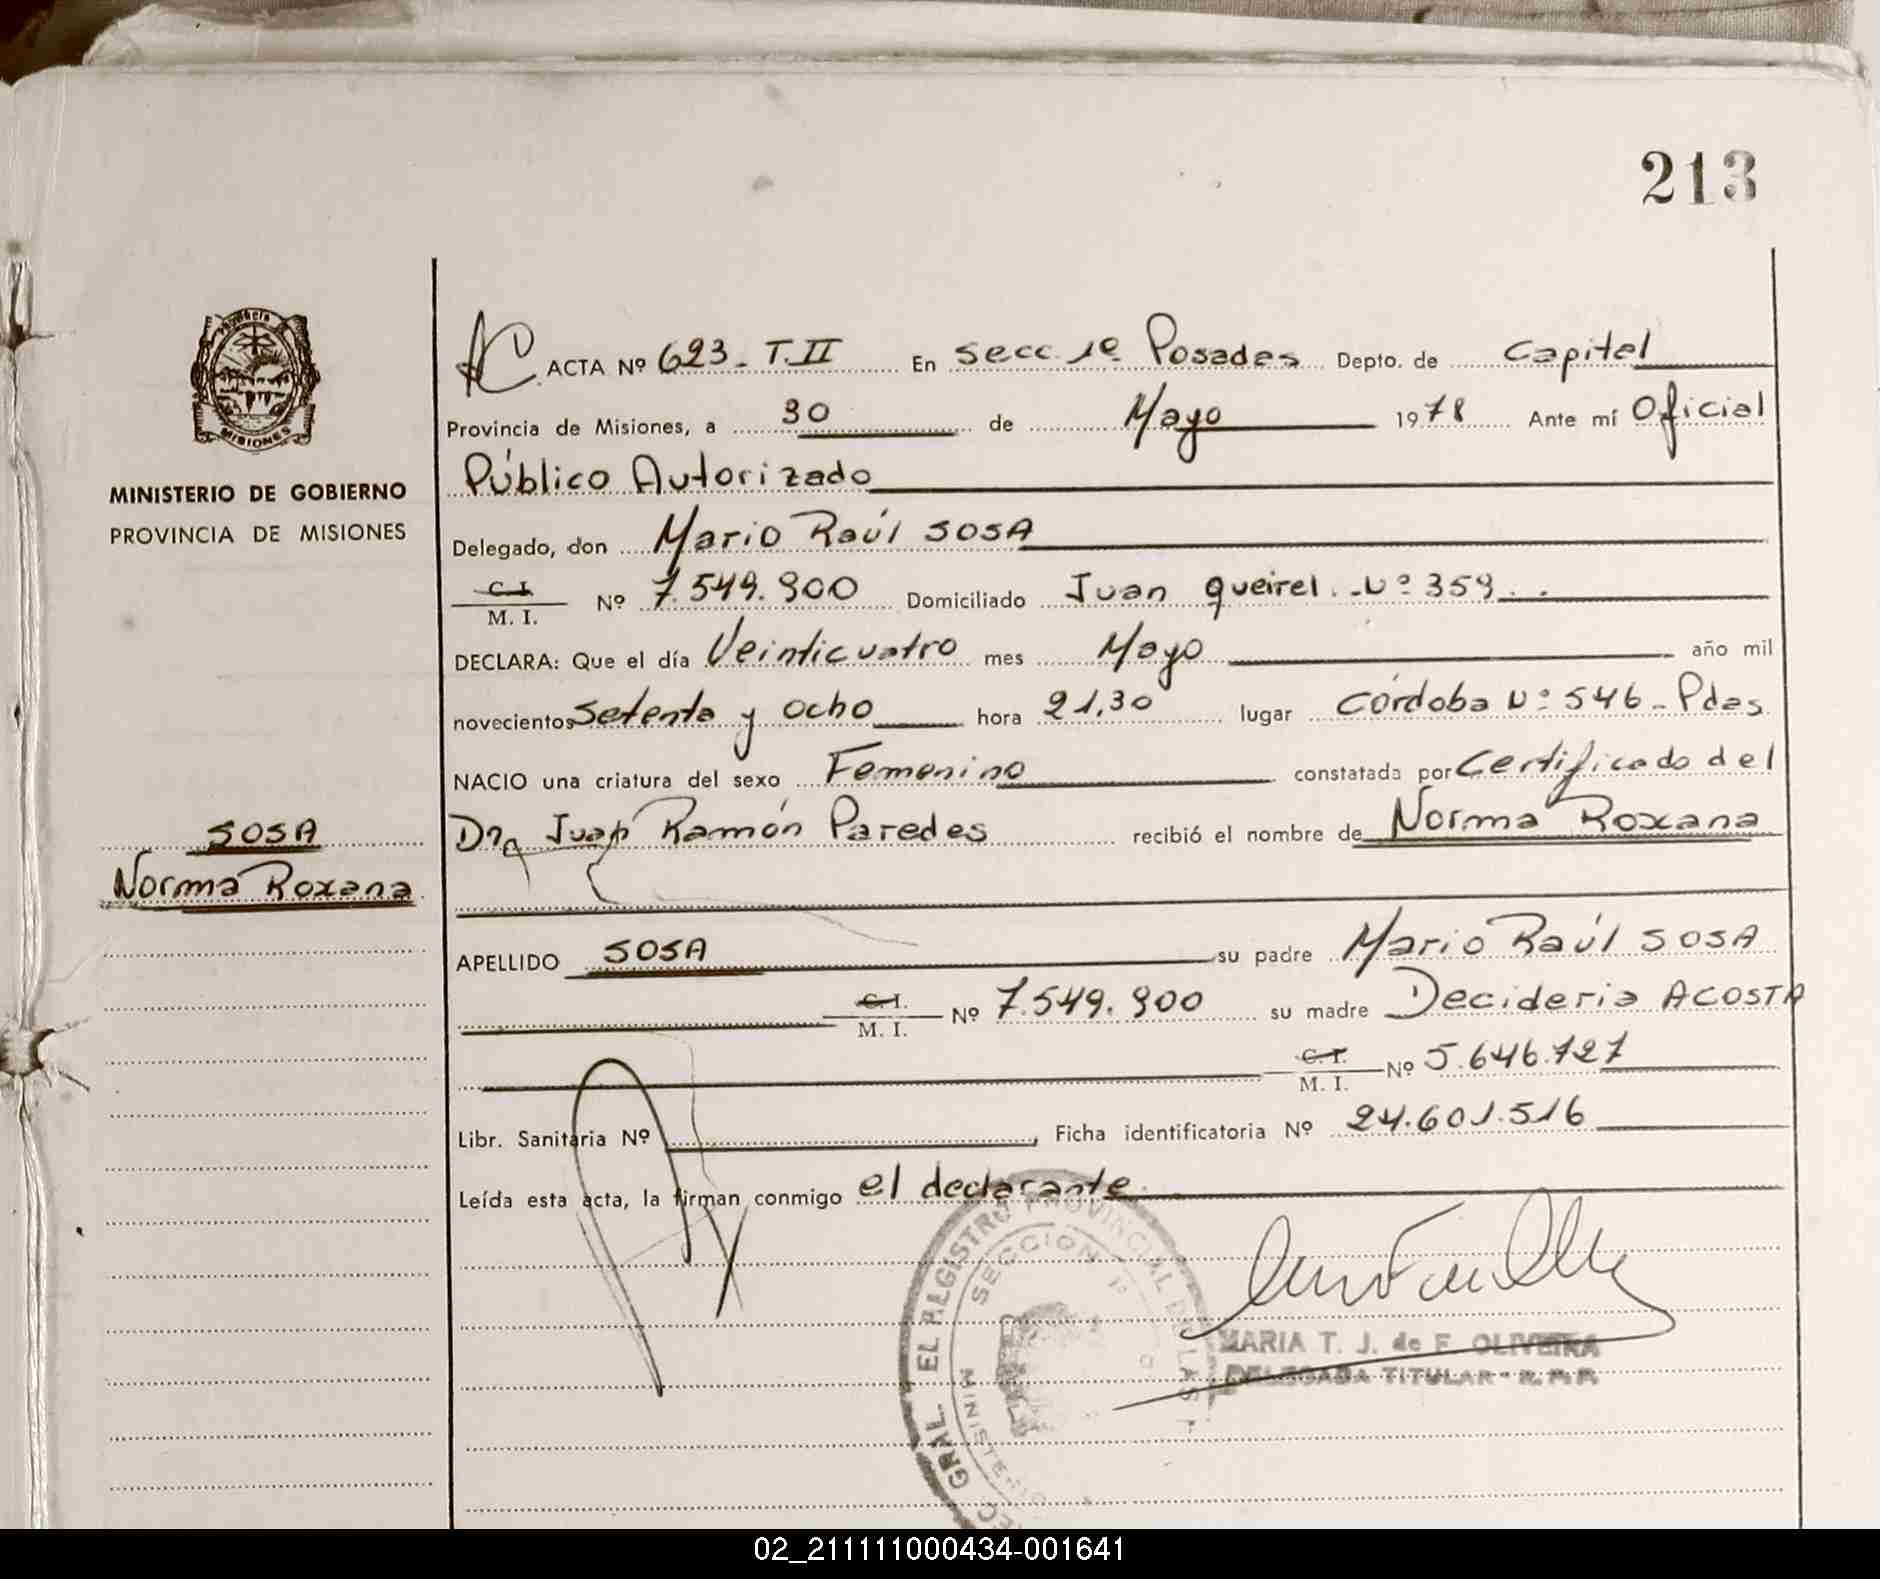 213
PROVINCIA
MISIONES
MINISTERIO DE GOBIERNO
PROVINCIA DE MISIONES
SOSA
Norma Roxana
ACTA Nº 623 - T. II En Secc. 1º Posadas Depto. de Capital
Provincia de Misiones, a 30 de Mayo 1978 Ante mí Oficial
Público Autorizado
Delegado, don Mario Raúl SOSA
C. I.
M. I. Nº 7.549.900 Domiciliado Juan Queirel Nº 359
DECLARA: Que el día Veinticuatro mes Mayo año mil
novecientos Setenta y Ocho hora 21,30 lugar Córdoba Nº 546 - Pdas.
NACIO una criatura del sexo Femenino constatada por Certificado del
Dr. Juan Ramón Paredes recibió el nombre de Norma Roxana
APELLIDO SOSA su padre Mario Raúl SOSA
C. I.
M. I. Nº 7.549.900 su madre Decideria ACOSTA
C. I.
M. I. Nº 5.646.727
Libr. Sanitaria Nº , Ficha identificatoria Nº 24.601.516
Leída esta acta, la firman conmigo el declarante
GRAL. EL REGISTRO PROVINCIAL DE LAS P
SECCION
MINISTERIO
MARIA T. J. de F. OLIVEIRA
DELEGADA TITULAR - R.P.P.
02_211111000434-001641